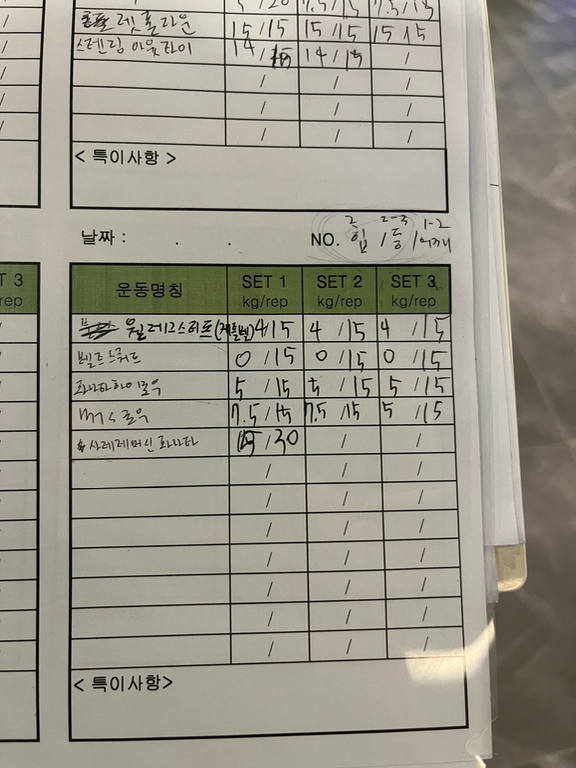 /20 7.5/15 7.5/15
렛풀다운 15/15 15/15 15/15
스탠딩 아웃타이 14/15 14/15 /
/ / /
/ / /
/ / /
< 특이사항 >
2 2-3 1-2
날짜 : . . NO. 힙 / 등 / 어깨
T 3
rep
운동명칭 SET 1 kg/rep SET 2 kg/rep SET 3 kg/rep
원레그스쿼트(케틀벨) 4/15 4/15 4/15
벨트스쿼트 0/15 0/15 0/15
파나타하이로우 5/15 5/15 5/15
MTS로우 7.5/15 7.5/15 5/15
사레레머신 파나타 15/30 / /
/ / /
/ / /
/ / /
/ / /
/ / /
/ / /
/ / /
< 특이사항>